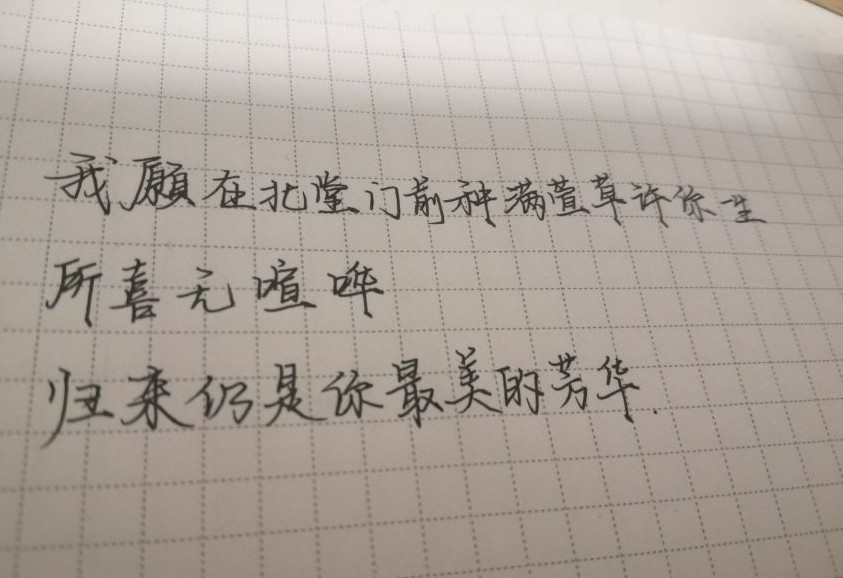 我願在北堂门前种满萱草许你一生
所喜无喧哗
归来仍是你最美的芳华.